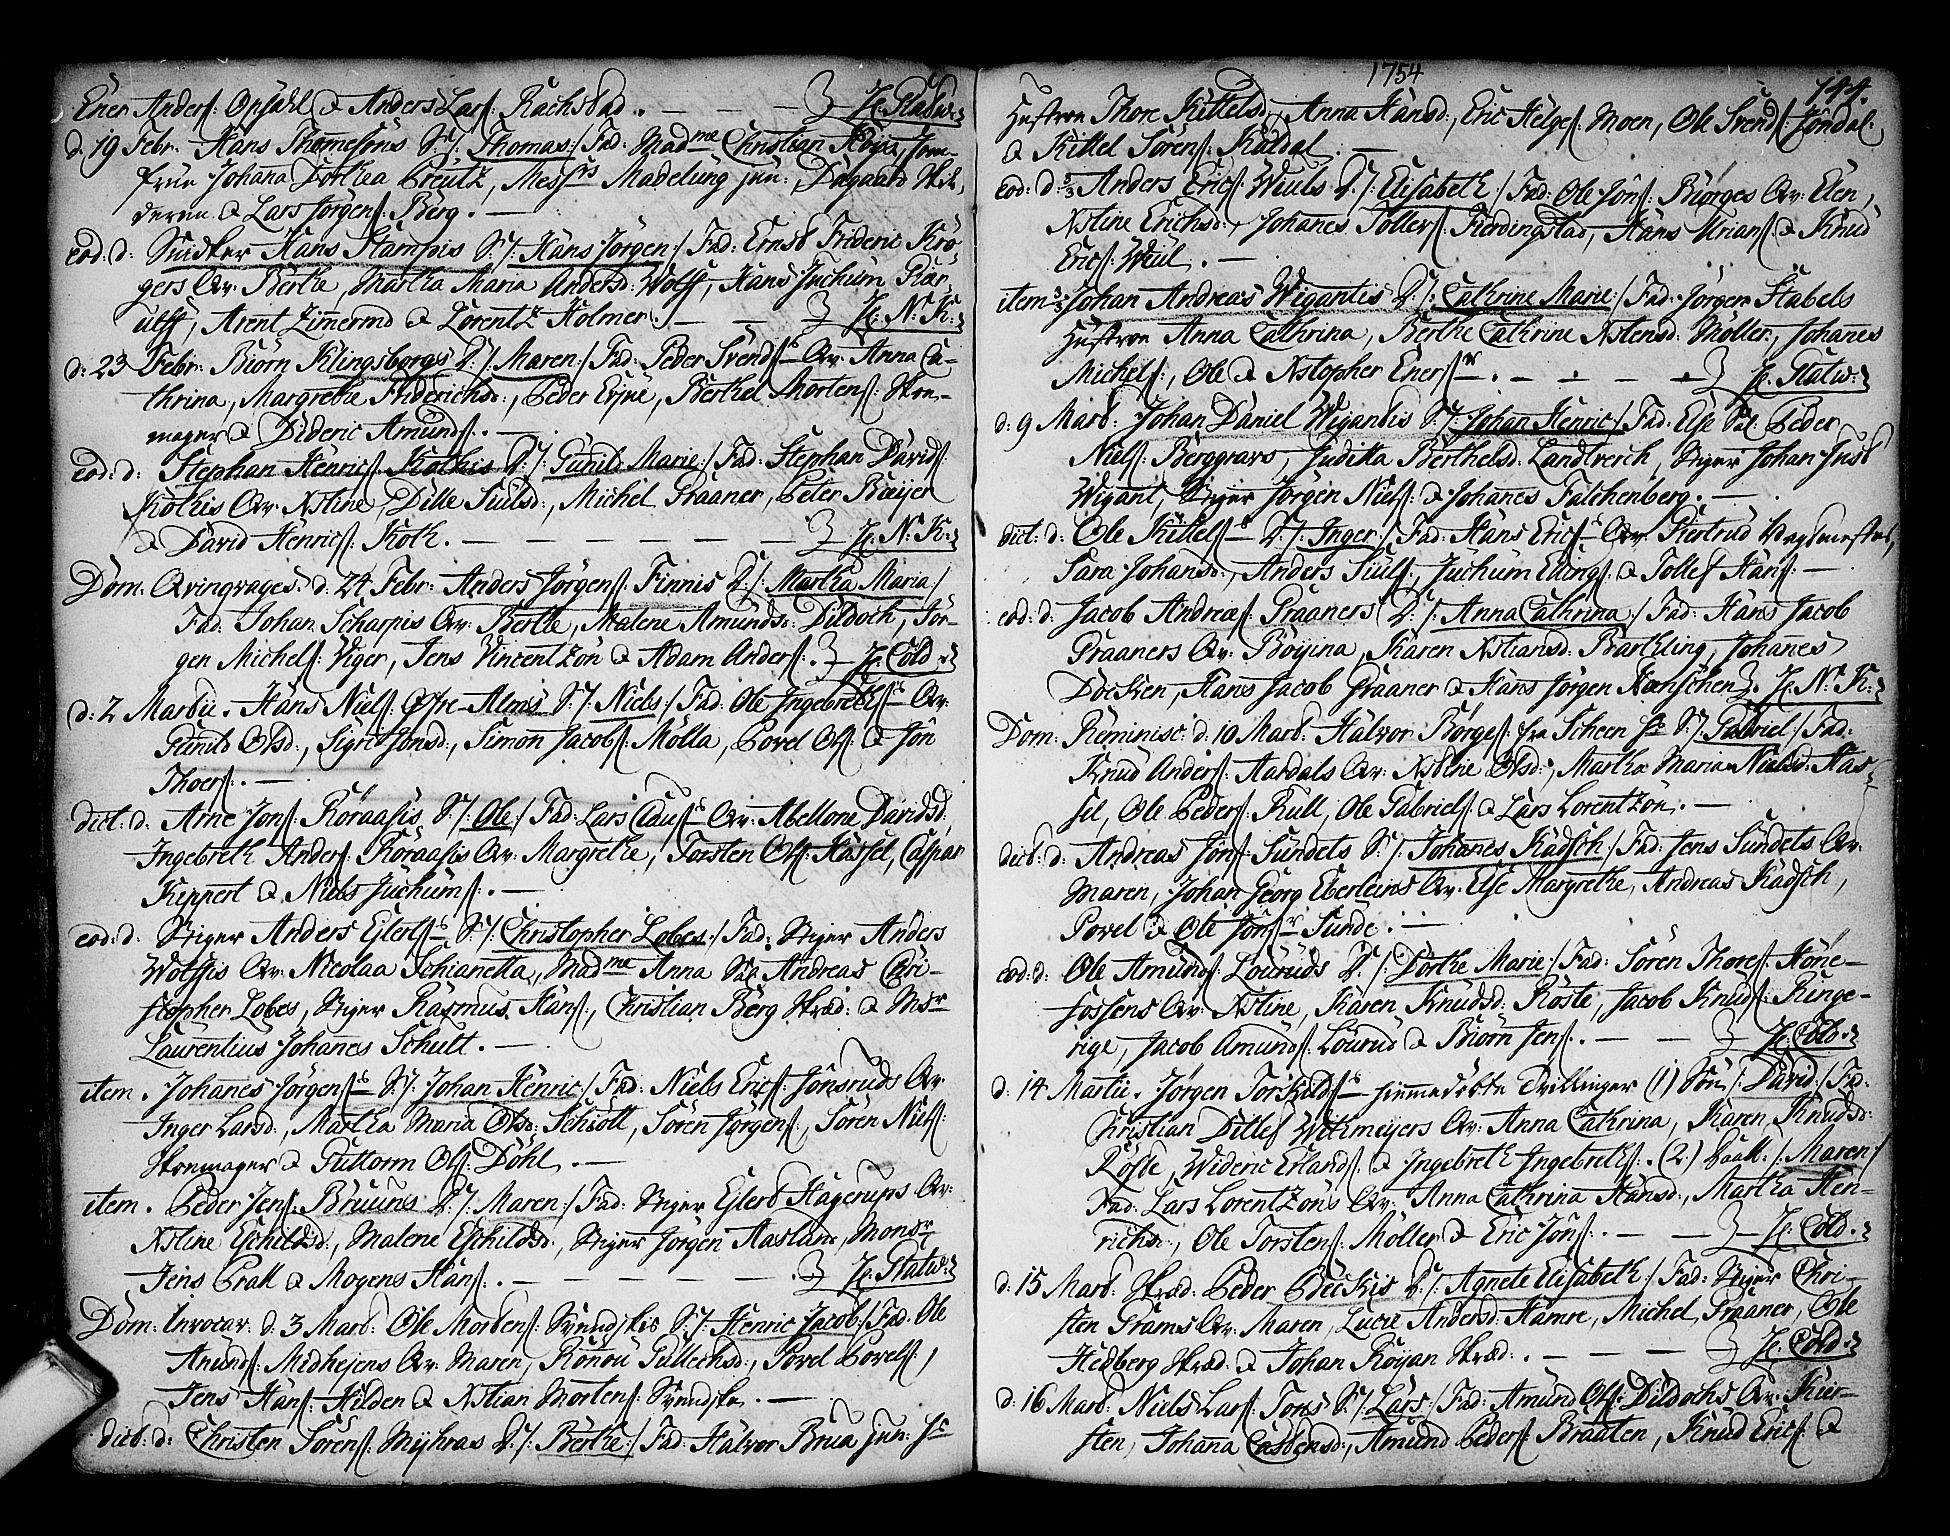 Ener Anders: Opsahl & Anders Lars: Rachstad. — — — } H: Statw:
d. 19 Febr. Hans Thomesöns S:/: Thomas:/ Fad: Madme Christian Höyer, Jom-
frue Johana Dorthea Creutz, Messrs Madelung jun:, Dagaard Skil,
deren & Lars Jörgens: Berg. —
eod: d: Snidker Hans Stampis S:/: Hans Jörgen:/ Fad: Ernst Frideric Krö
gers Qv: Berthe, Martha Maria Andersd: Wolff, Hans Juchum Kar,
ulff, Arent Zimermd & Lorentz Holmer. — — } H: N: K:
d: 23 Febr: Biörn Klingsborgs D:/: Maren:/ Fad: Peder Svends: Qv: Anna Ca-
thrina, Margrethe Friderichsd:, Peder Eyne, Berthel Mortens: Skoe-
mager & Dideric Amunds: —
eod: d: Stephan Henrics: Kothis D:/: Gunild Marie:/ Fad: Stephan Davids:
Kothis Qv: Xstine, Dille Siulsd:, Michel Graaner, Peter Böyer
& David Henrics: Koth. — — — — } H: N: K:
Dom: Qvinqvages: d: 24 Febr: Anders Jörgens: Finnis D:/: Martha Maria:/
Fad: Johan Scharpis Qv: Berthe, Malene Amundsd: Dildoch, Jör-
gen Michels: Wiger, Jens Vincentzön & Adam Anders: } H: Cold:
d: 2 Martii. Hans Niels: Östre-Almis S:/: Niels:/ Fad: Ole Ingebrets: Qv:
Gunild Olsd:, Sigrid Jonsd:, Simon Jacobs: Mölla, Povel Ols: & Jön
Thoers: —
dict: d: Arne Jons: Köraasis S:/: Ole:/ Fad: Lars Claus: Qv: Abellone Davidsd:
Ingebreth Anders: Köraasis Qv: Margrethe, Torsten Ols: Hassel, Caspar
Keppert & Niels Juchums: —
eod: d: Stiger Anders Ejlerts: S:/: Christopher Lobes:/ Fad: Stiger Anders
Wolffis Qv: Nicolaa Schianetta, Madme Anna Sal: Andreas Chri-
stopher Lobes, Stiger Rasmus Hans:, Christian Berg Skræd: & Msr
Laurentius Johanes Schult. —
item. Johanes Jörgens: S:/: Johan Henric:/ Fad: Niels Erics: Jönsruds Qv:
Inger Larsd:, Martha Maria Olsd: Schiött, Sören Jörgens:, Sören Niels:
Skoemager & Guttorm Ols: Döhl. —
item. Peder Jens: Bruuns D:/: Maren:/ Fad: Stiger Ejlert Hagerups Qv:
Xstine Eschildsd:, Malene Eschildsd:, Stiger Jörgen Aasland, Monsr
Jens Prall & Mogens Hans: — — — — } H: Statw:
Dom: Invocav: d: 3 Mart: Ole Mortens: Svendskis S:/: Henric Jacob:/ Fad: Ole
Amunds: Midhejens Qv: Maren, Rönou Gullechsd:, Povel Povels:,
Jens Hans: Hilden & Xstian Mortens: Svendske. —
dict: d: Christen Sörens: Myhras D:/: Berthe:/ Fad: Halvor Brua jun: Hs
1754
144.
Hustroe Thore Kittelsd:, Anna Hansd:, Eric Helges: Moen, Ole Svends: Jondal:
& Kittel Sörens: Kaldal. —
eod: d: 3/3 Anders Erics: Wiuls D:/: Elisabeth:/ Fad: Ole Jöns: Biörges Qv: Elen,
Xstine Erichsd:, Johanes Tollefs: Fierdingstad, Hans Urians: & Knud
Erics: Wiul. —
item 3/3 Johan Andreas Wigantis D:/: Cathrine Marie:/ Fad: Jörgen Stabels
Hustroe Anna Cathrina, Berthe Cathrine Xstensd: Möller, Johanes
Michels:, Ole & Xstopher Eners: — — — } H: Statw:
d: 9 Mart: Johan Daniel Wigantis S:/: Johan Henric:/ Fad: Else Sal: Peder
Niels: Berggravs, Juditha Berthelsd: Landtverch, Stiger Johan Just
Wigant, Stiger Jörgen Niels: & Johanes Falckenberg. —
dict: d: Ole Kittels: D:/: Inger:/ Fad: Hans Erics: Qv: Kiertrud Vægtmester,
Sara Johansd:, Anders Siuls:, Juchum Ellings: & Tollef Hans: —
eod: d: Jacob Andreæs: Graaners D:/: Anna Cathrina:/ Fad: Hans Jacob
Graaners Qv: Böyina, Karen Xstiansd: Barthling, Johanes
Docken, Hans Jacob Graaner & Hans Jörgen Hænschen } H: N: K:
Dom: Reminisc: d: 10 Mart: Halvor Börges: fra Scheen Hs S:/: Gabriel:/ Fad:
Knud Anders: Aardals Qv: Xstine Olsd:, Martha Maria Nielsd: Has-
sel, Ole Peders: Kull, Ole Gabriels: & Lars Lorentzön. —
dict: d: Andreas Jöns: Sundets S:/: Johanes Kadsch:/ Fad: Jens Sundets Qv:
Maren, Johan Georg Eberleins Qv: Else Margrethe, Andreas Kadsch,
Povel & Ole Jöns: Sunde. —
eod: d: Ole Amunds: Louruds D:/: Dorthe Marie:/ Fad: Sören Thores: Höne-
fossens Qv: Xstine, Karen Knudsd: Röste, Jacob Knuds: Ringe-
rige, Jacob Amunds: Lourud & Biörn Jens: — — } H: Cold:
d: 14 Martii. Jörgen Torkilds: hiemedöbte Tvillinger (1) Sön /: David:/ Fad:
Christian Ditlef Withmeyers Qv: Anna Cathrina, Karen Knudsd:
Röste, Wideric Erlands: & Ingebreth Ingebreths: (2) Datt: /: Maren:/
Fad: Lars Lorentzöns Qv: Anna Cathrina Hansd:, Martha Hen-
richsd:, Ole Torstens: Möller & Eric Jöns: — — } H: Cold:
d: 15 Mart: Skræd: Peder Beckis D:/: Agnete Elisabeth:/ Fad: Stiger Chri-
sten Grams Qv: Maren, Lucie Andersd: Hamre, Michel Graaner, Ole
Hedberg Skræd: & Johan Royan Skræd: — — — } H: Cold:
d: 16 Mart: Niels Lars: Tons S:/: Lars:/ Fad: Amund Ols: Dildochs Qv: Kier-
sten, Johana Castensd:, Amund Peders: Braaten, Knud Erics: &